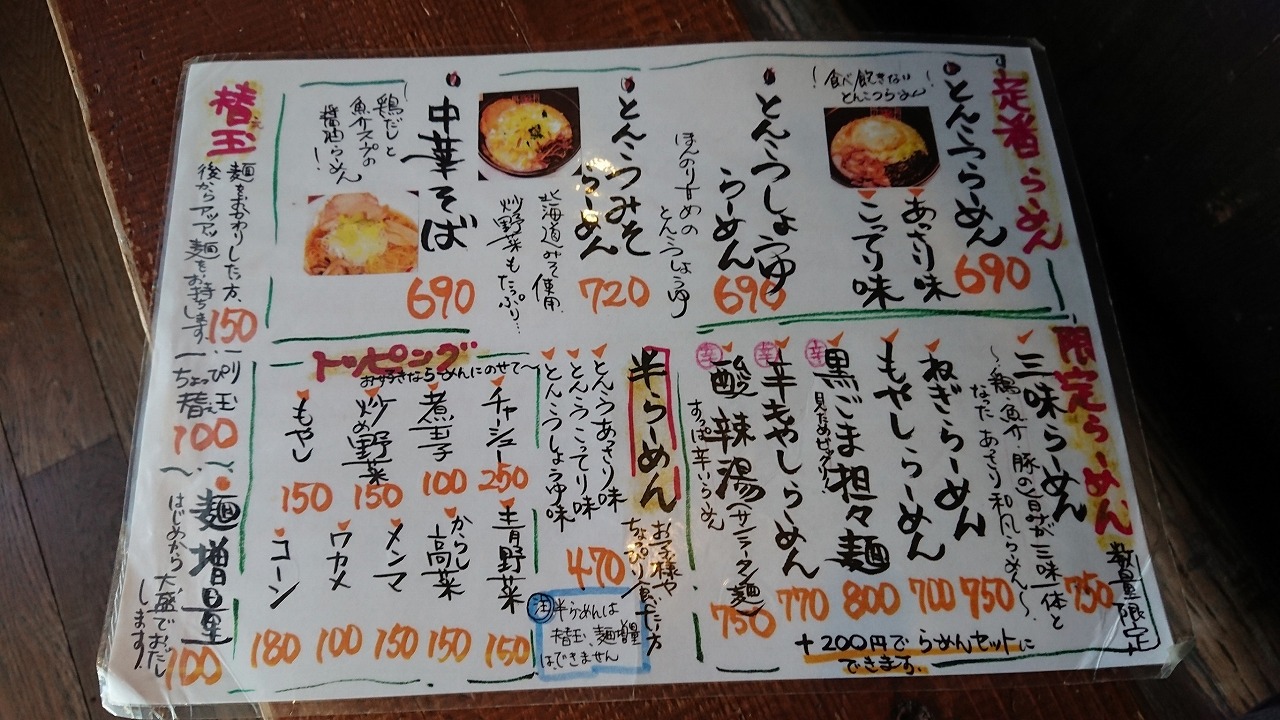 定番らーめん
とんこつらーめん
690
あっさり味
こってり味
！食べ飽きない！
とんこつらーめん
とんこつしょうゆ
らーめん
690
ほんのり甘めの
とんこつしょうゆ
とんこつみそ
らーめん
720
北海道みそ使用
炒野菜もたっぷり…
中華そば
690
鶏だしと
魚介スープの
醤油らーめん！
限定らーめん
数量限定
三味らーめん
750
〜鶏、魚介、豚の旨みが三味一体と
なった あっさり和風らーめん〜
ねぎらーめん
950
もやしらーめん
700
辛 黒ごま担々麺
800
辛 辛もやしらーめん
770
辛 酸辣湯(サンラータン麺)
750
すっぱ辛いらーめん
＋200円で らーめんセットに
できます。
半らーめん
お子様や
とんこつあっさり味
とんこつこってり味
とんこつしょうゆ味
470
注 半らーめんは
替玉、麺増量
はできません
トッピング
お好きならーめんにのせて〜
チャーシュー
250
煮玉子
100
炒め野菜
150
もやし
150
青野菜
150
からし
高菜
150
メンマ
150
ワカメ
100
コーン
180
替え玉
麺をおかわりしたい方、
後からアツアツ麺をお持ちします。
150
ちょっぴり
替え玉
100
麺増量
はじめから大盛でおだし
します。
100